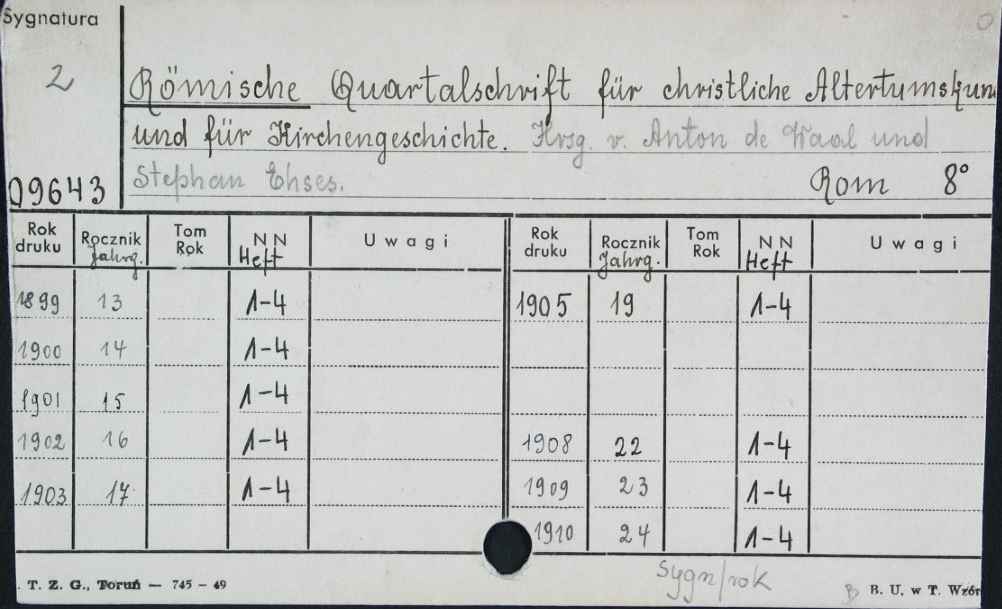 Sygnatura
2
Römische Quartalschrift für christliche Altertumskun
und für Kirchengeschichte. Hrsg. v. Anton de Waal und
Stephan Ehses.
Rom 8°
09643
Rok druku Rocznik Jahrg. Tom Rok NN Heft Uwagi Rok druku Rocznik Jahrg. Tom Rok NN Heft Uwagi
1899 13 1-4 1905 19 1-4
1900 14 1-4
1901 15 1-4
1902 16 1-4 1908 22 1-4
1903 17 1-4 1909 23 1-4
1910 24 1-4
Sygn/rok
. T. Z. G., Toruń — 745 – 49
B. U. w T. Wzór